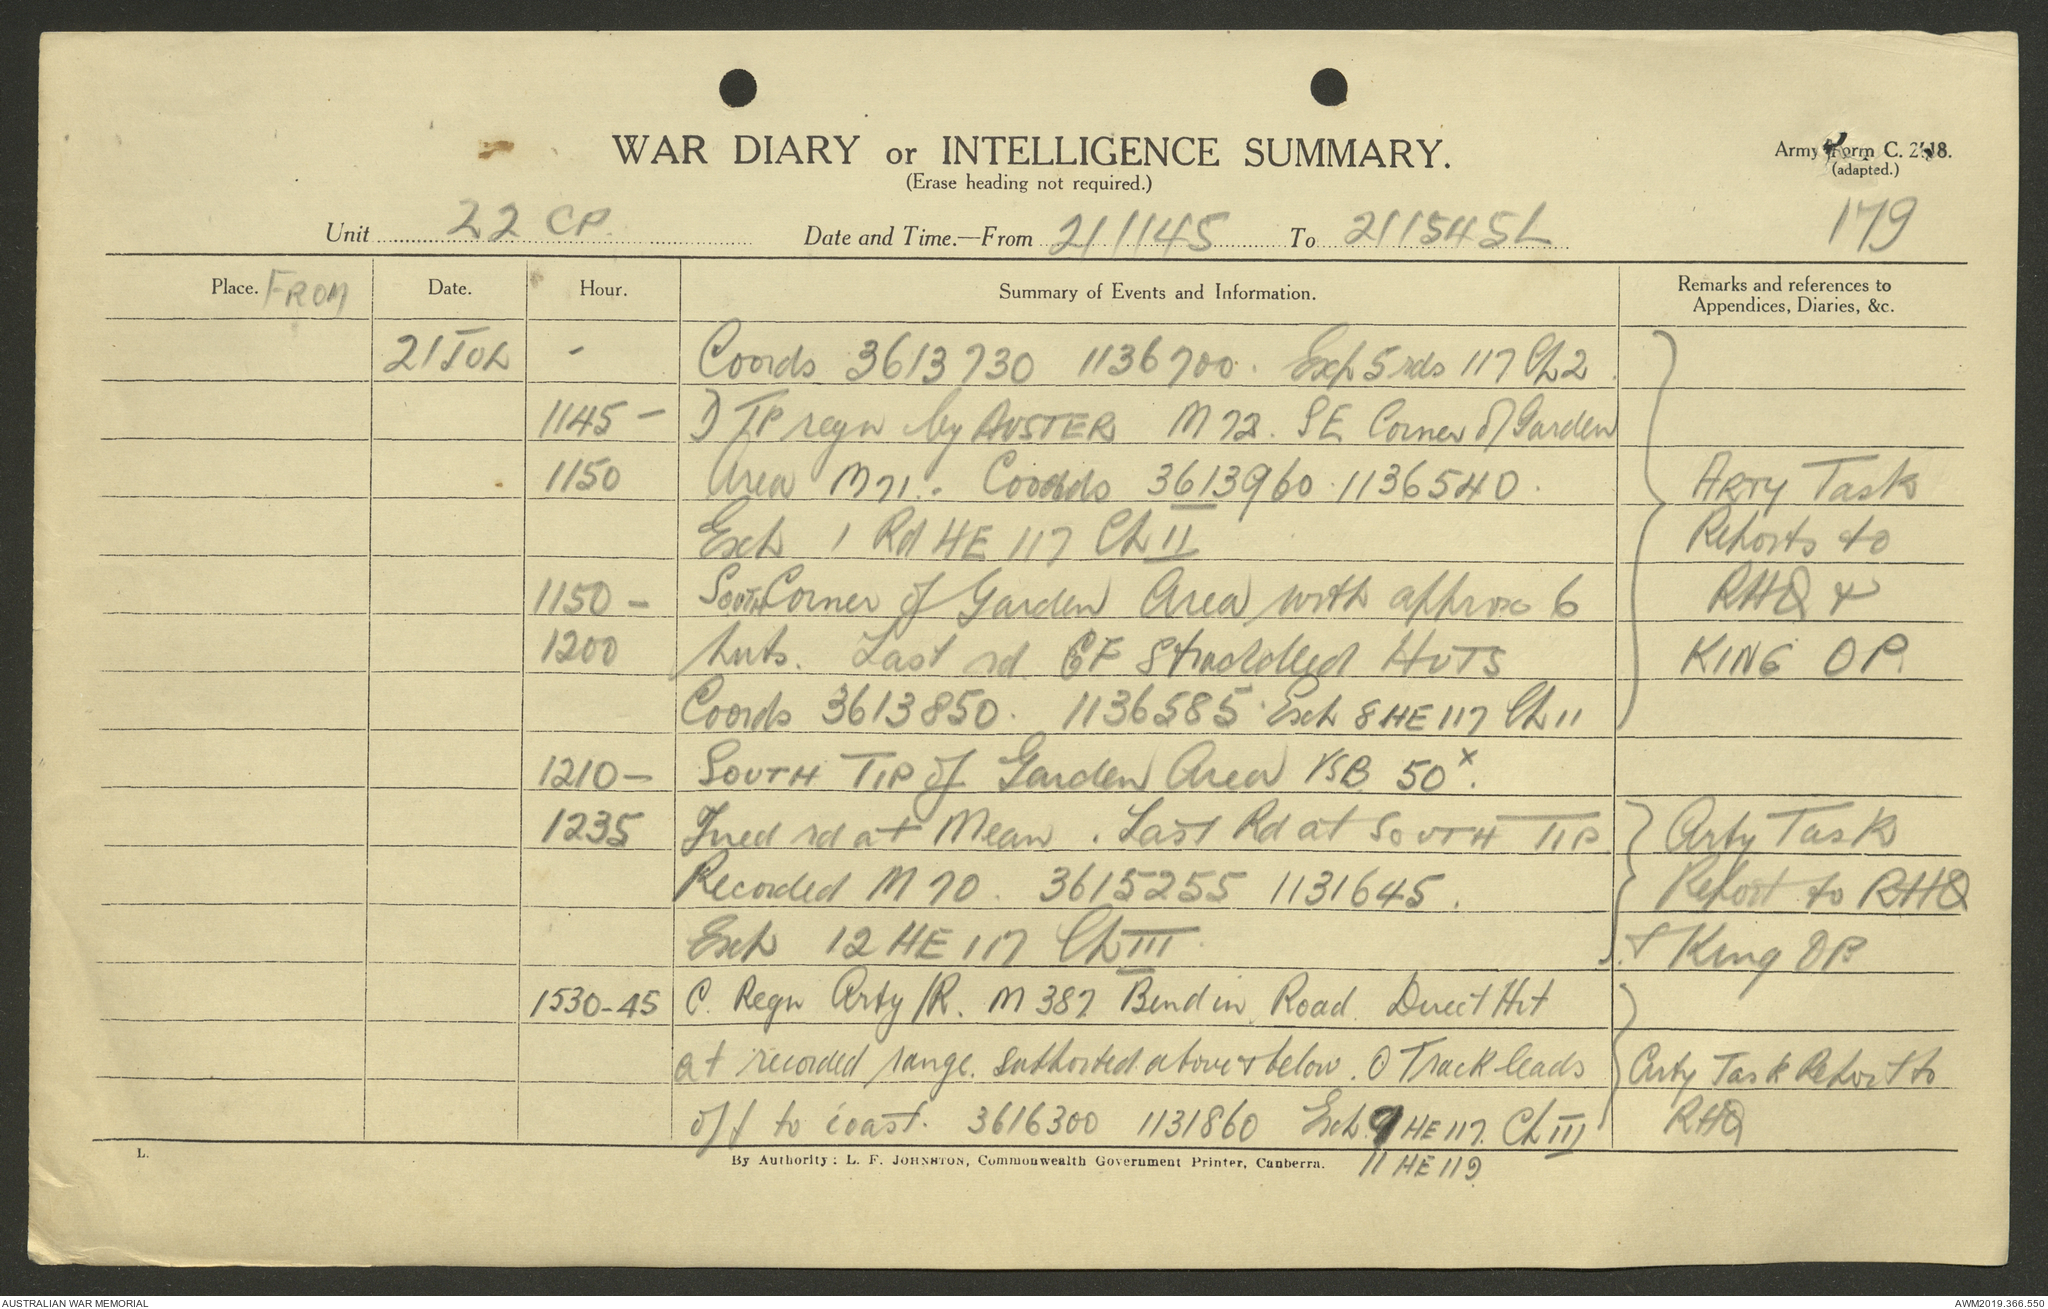 WAR DIARY or INTELLIGENCE SUMMARY.
(Erase heading not required.)
Army Form C. 2118.
(adapted.)
179
Unit 22 CP. Date and Time.—From 211145 To 211545L
Place. FROM Date. Hour. Summary of Events and Information. Remarks and references to Appendices, Diaries, &c.
21 JUL - Coords 3613730 1136700. Exp 5 rds 117 Ch 2
1145 - D TP regn by AUSTER M72. SE Corner of Garden
1150 Area M71. Coords 3613960 1136540. Arty Task
Exp 1 Rd HE 117 Ch II Reports to
1150 - South Corner of Garden Area with approx 6 RHQ &
1200 huts. Last rd GF Straddled HUTS KING OP.
Coords 3613850. 1136585. Exp 8 HE 117 Ch 11
1210 - SOUTH TIP of Garden Area VSB 50x.
1235 Fired rd at Mean. Last Rd at SOUTH TIP Arty Task
Recorded M70. 3615255 1131645. Report to RHQ
Exp 12 HE 117 Ch III + King OP
1530-45 C. Regn Arty /R. M387 Bend in Road. Direct Hit
at recorded range. supported above & below. O Track leads Arty Task Report to
off to coast. 3616300 1131860 Exp. 9 HE 117. Ch III RHQ
11 HE 119
L.
By Authority: L. F. JOHNSTON, Commonwealth Government Printer, Canberra.
AUSTRALIAN WAR MEMORIAL
AWM2019.366.550